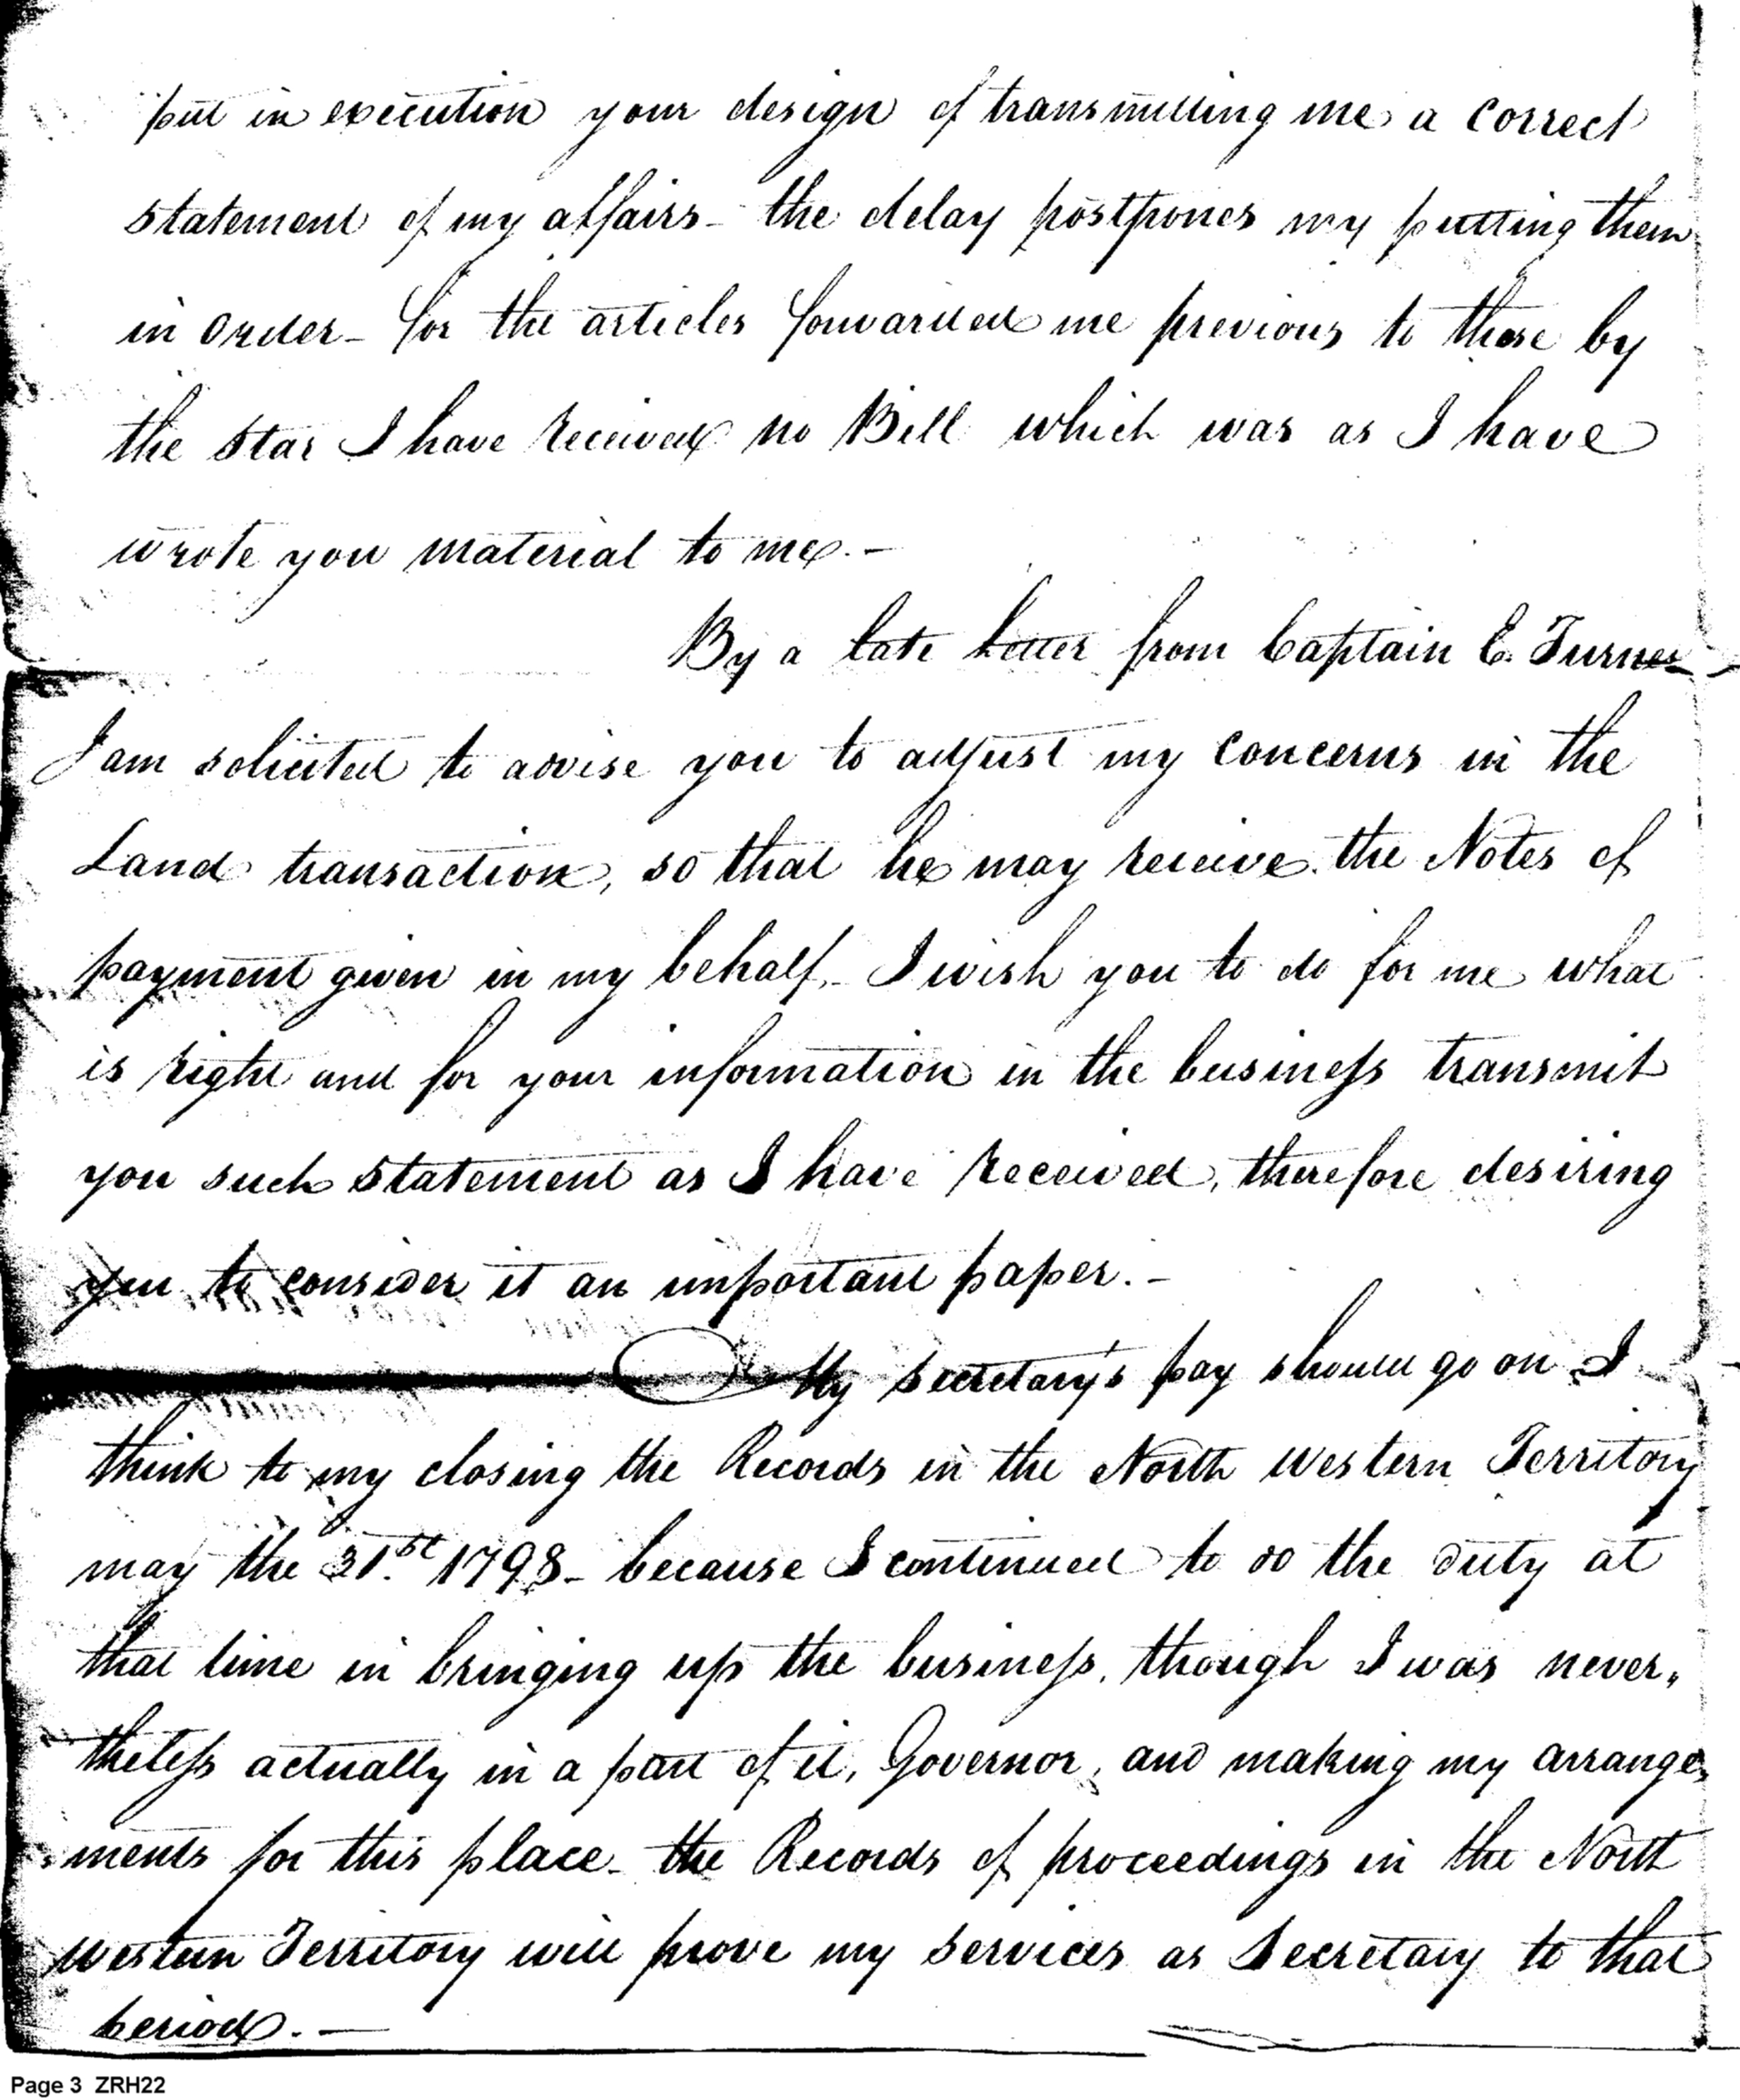 put in execution your design of transmitting me a correct
statement of my affairs - the delay postpones my putting them
in order - for the articles forwarded me previous to those by
the Star I have received no Bill which was as I have
wrote you material to me. -
By a late letter from Captain E. Turner
I am solicited to advise you to adjust my concerns in the
Land transaction, so that he may receive the Notes of
payment given in my behalf. - I wish you to do for me what
is right and for your information in the business transmit
you such statement as I have received, therefore desiring
you to consider it an important paper. -
My Secretary's pay should go on I
think to my closing the Records in the North Western Territory
may the 31st. 1798 - because I continued to do the duty at
that time in bringing up the business, though I was never„
theless actually in a part of it, Governor, and making my arrange„
ments for this place - the Records of proceedings in the North
Western Territory will prove my services as Secretary to that
period. -
Page 3 ZRH22